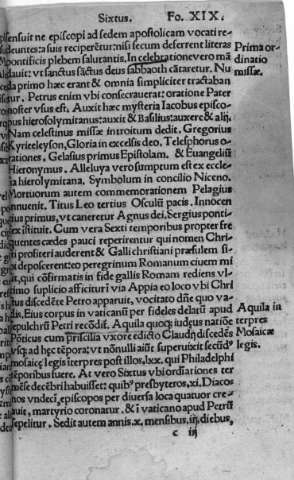 Sixtus. Fo. XIX.
ꝑsensuit ne episcopi ad sedem apostolicam vocati re-
deuntes: a suis reciperẽtur: nisi secum deferrent literas
Pontificis plebem salutantis. In celebratione vero mã
dauit: vt sanctus sãctus deus sabbaoth cãtaretur. Nu
da primo hæc erant & omnia simpliciter tractaban
tur. Petrus enim vbi consecrauerat: oratione Pater
noster vsus est. Auxit hæc mysteria Iacobus episco-
pus hierosolymitanus: auxit & Basilius: auxere & alij.
Nam celestinus missæ introitum dedit. Gregorius
Kyrieeleyson, Gloria in excelsis deo. Telesphorus o-
rationes. Gelasius primus Epistolam. & Euangeliũ
Hieronymus. Alleluya vero sumptum est ex eccle-
sia hierolymitana. Symbolum in concilio Niceno.
Mortuorum autem commemorationem Pelagius
inuenit. Titus Leo tertius Osculũ pacis. Innocen
tius primus, vt caneretur Agnus dei, Sergius ponti-
fex īstituit. Cum vera Sexti temporibus propter fre
quentes cædes pauci reperirentur qui nomen Chri-
sti profiteri auderent & Galli christiani præsulem si-
bi deposcerent: eo peregrinum Romanum ciuem mi
sit, qui cõfirmatis in fide gallis Romam rediens vl-
timo suplicio afficitur: via Appia eo loco vbi Chri
stus discedẽte Petro apparuit, vocitato dñe quo va-
dis, Eius corpus in vaticanũ per fideles delatũ apud
sepulchrũ Petri recõdiť. Aquila quoq; iudęus natiõe
Ponticus cum priscilla vxore edicto Claudij discedẽs
vsq; ad hęc tẽpora: vt nonulli aiũt superuixit: secũdꝰ
mosaicę legis iterpres post illos, lxx. qui Philadelphi
tẽporibus fuere. At vero Sixtus vbi ordiationes ter
mẽse decẽbri habuisset: quibꝰ presbyteros, xi. Diaco
nos vndecī, episcopos per diuersa loca quatuor cre-
auit, martyrio coronatur. & ī vaticano apud Petrũ
sepelitur. Sedit autem annis. x, mensibus, iij, diebus,
c iij
Prima or
dinatio
missæ.
Aquila in
terpres
Mosaicæ
legis.